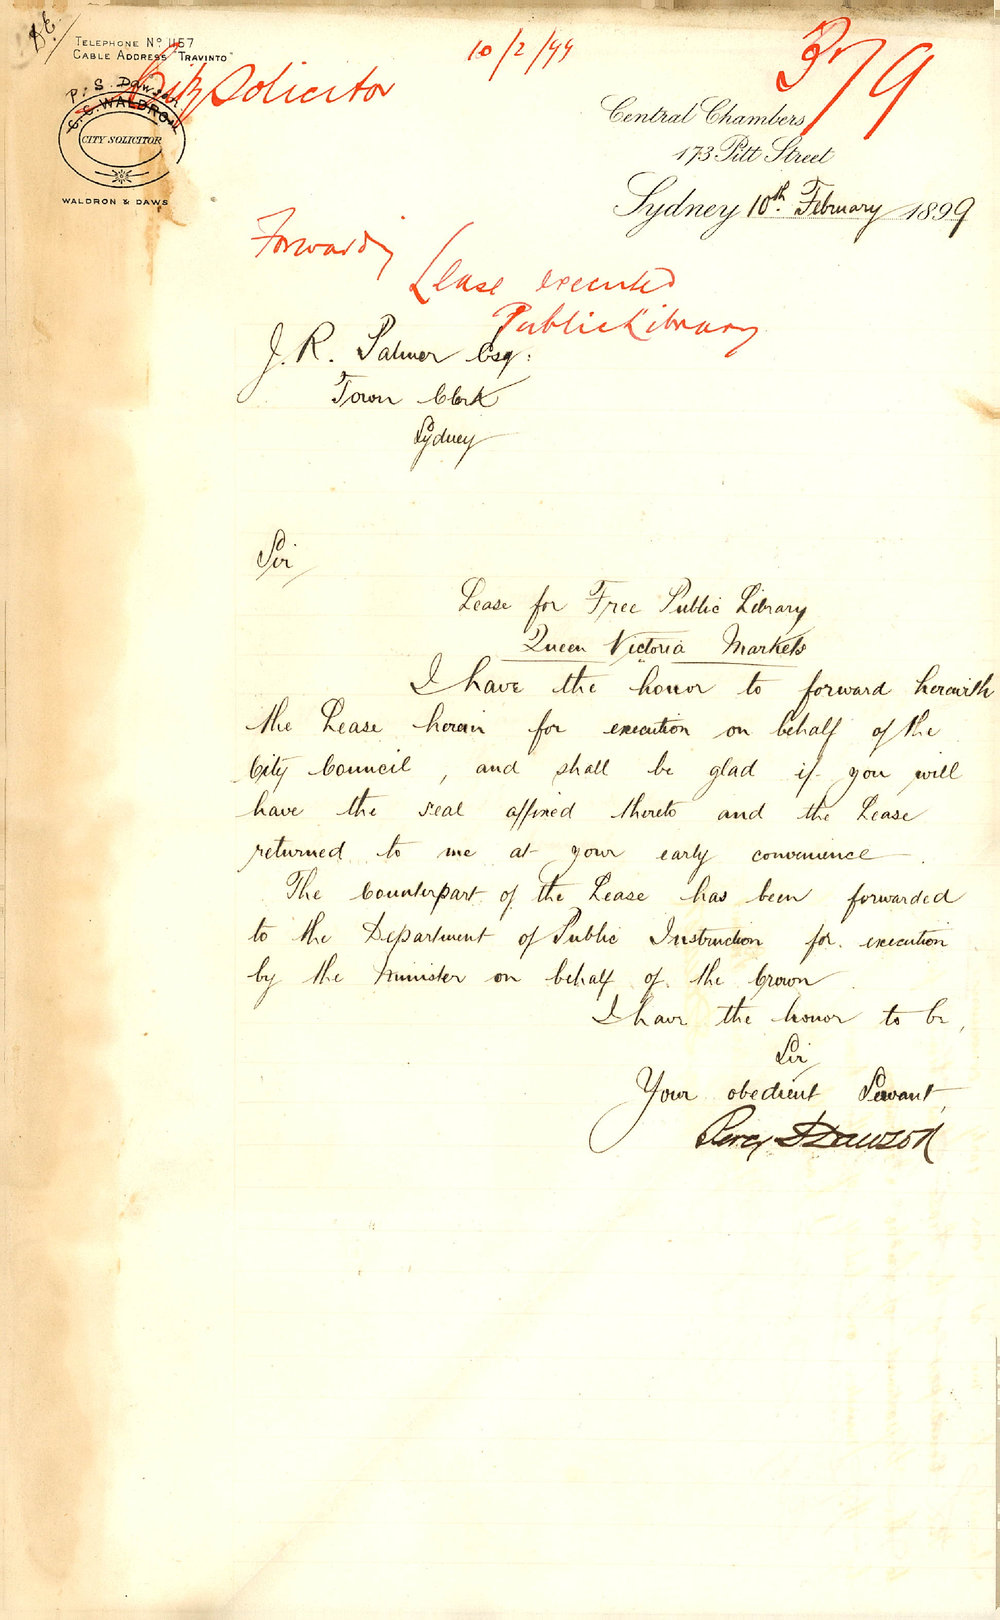 Telephone No. 1157
Cable Address "Travinto"
P. S. Dawson
C. C. WALDRON
CITY SOLICITOR
WALDRON & DAWS
City Solicitor
10/2/99
379
Central Chambers
173 Pitt Street
Sydney 10th. February 1899
Forwarding
Lease executed
Public Library
J. R. Palmer Esq:
Town Clerk
Sydney
Sir
Lease for Free Public Library
Queen Victoria Markets
I have the honor to forward herewith
the Lease herein for execution on behalf of the
City Council, and shall be glad if you will
have the seal affixed thereto and the Lease
returned to me at your early convenience.
The Counterpart of the Lease has been forwarded
to the Department of Public Instruction for execution
by the Minister on behalf of the Crown
I have the honor to be,
Sir
Your obedient Servant,
Percy S Dawson